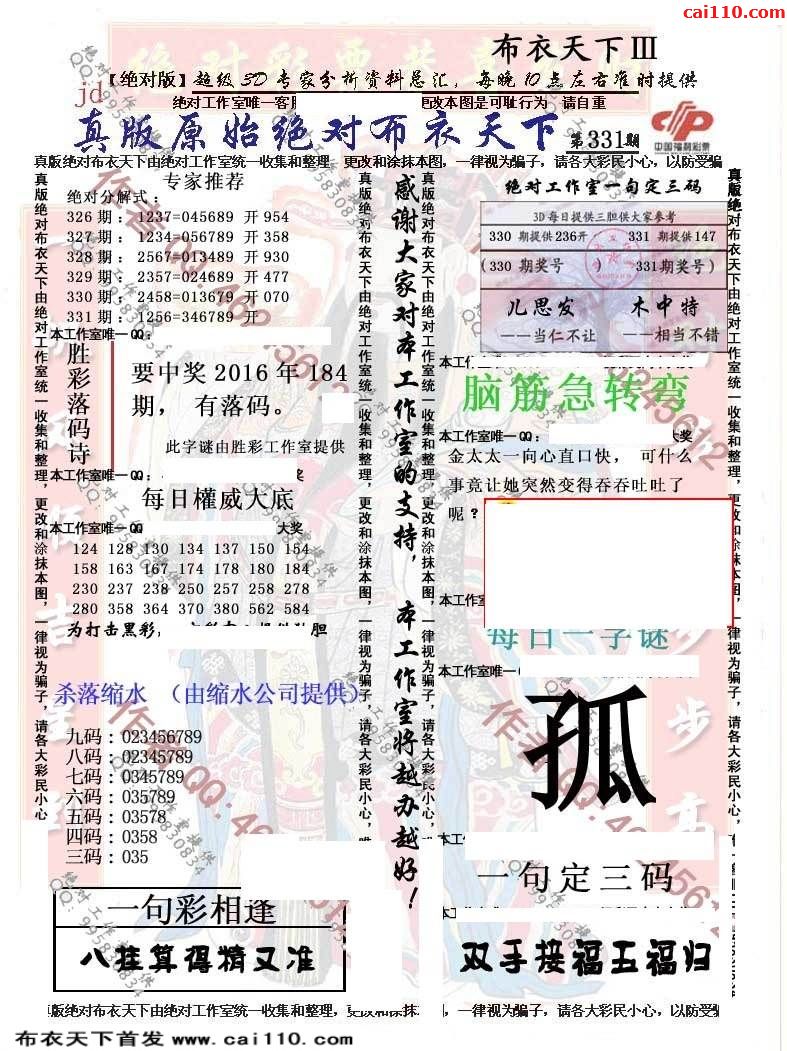 cai110.com
布衣天下Ⅲ
【绝对版】超级3D专家分析资料总汇，每晚10点左右准时提供
jd
绝对工作室唯一客服
更改本图是可耻行为 请自重
真版原始绝对布衣天下
第331期
中国福利彩票
真版绝对布衣天下由绝对工作室统一收集和整理，更改和涂抹本图，一律视为骗子，请各大彩民小心，以防受骗
专家推荐
绝对分解式：
326期：1237=045689 开954
327期：1234=056789 开358
328期：2567=013489 开930
329期：2357=024689 开477
330期：2458=013679 开070
331期：1256=346789 开
本工作室唯一QQ：
胜彩落码诗
要中奖2016年184
期，有落码。
此字谜由胜彩工作室提供
本工作室唯一QQ：
奖
每日權威大底
本工作室唯一QQ
大奖
124 128 130 134 137 150 154
158 163 167 174 178 180 184
230 237 238 250 257 258 278
280 358 364 370 380 562 584
为打击黑彩，
胆
杀落缩水 （由缩水公司提供）
九码：023456789
八码：02345789
七码：0345789
六码：035789
五码：03578
四码：0358
三码：035
一句彩相逢
八挂算得精又准
真版绝对布衣天下由绝对工作室统一收集和整理，更改和涂抹本图，一律视为骗子，请各大彩民小心
感谢大家对本工作室的支持，本工作室将越办越好！
真版绝对布衣天下由绝对工作室统一收集和整理，更改和涂抹本图，一律视为骗子，请各大彩民小心，
绝对工作室一句定三码
3D每日提供三胆供大家参考
330 期提供236开 331 期提供147
(330 期奖号 ) 331期奖号)
儿思发 木中特
——当仁不让 ——相当不错
本工
脑筋急转弯
本工作室唯一QQ：
大奖
金太太一向心直口快， 可什么
事竟让她突然变得吞吞吐吐了
呢？
本工作室
每日一字谜
本工作室唯一
孤
本工
一句定三码
双手接福五福归
真版绝对布衣天下由绝对工作室统一收集和整理，更改和涂抹本图，一律视为骗子，请各大彩民小心，
真版绝对布衣天下由绝对工作室统一收集和整理，更改和涂抹
，一律视为骗子，请各大彩民小心，以防受骗
布衣天下首发 www.cai110.com